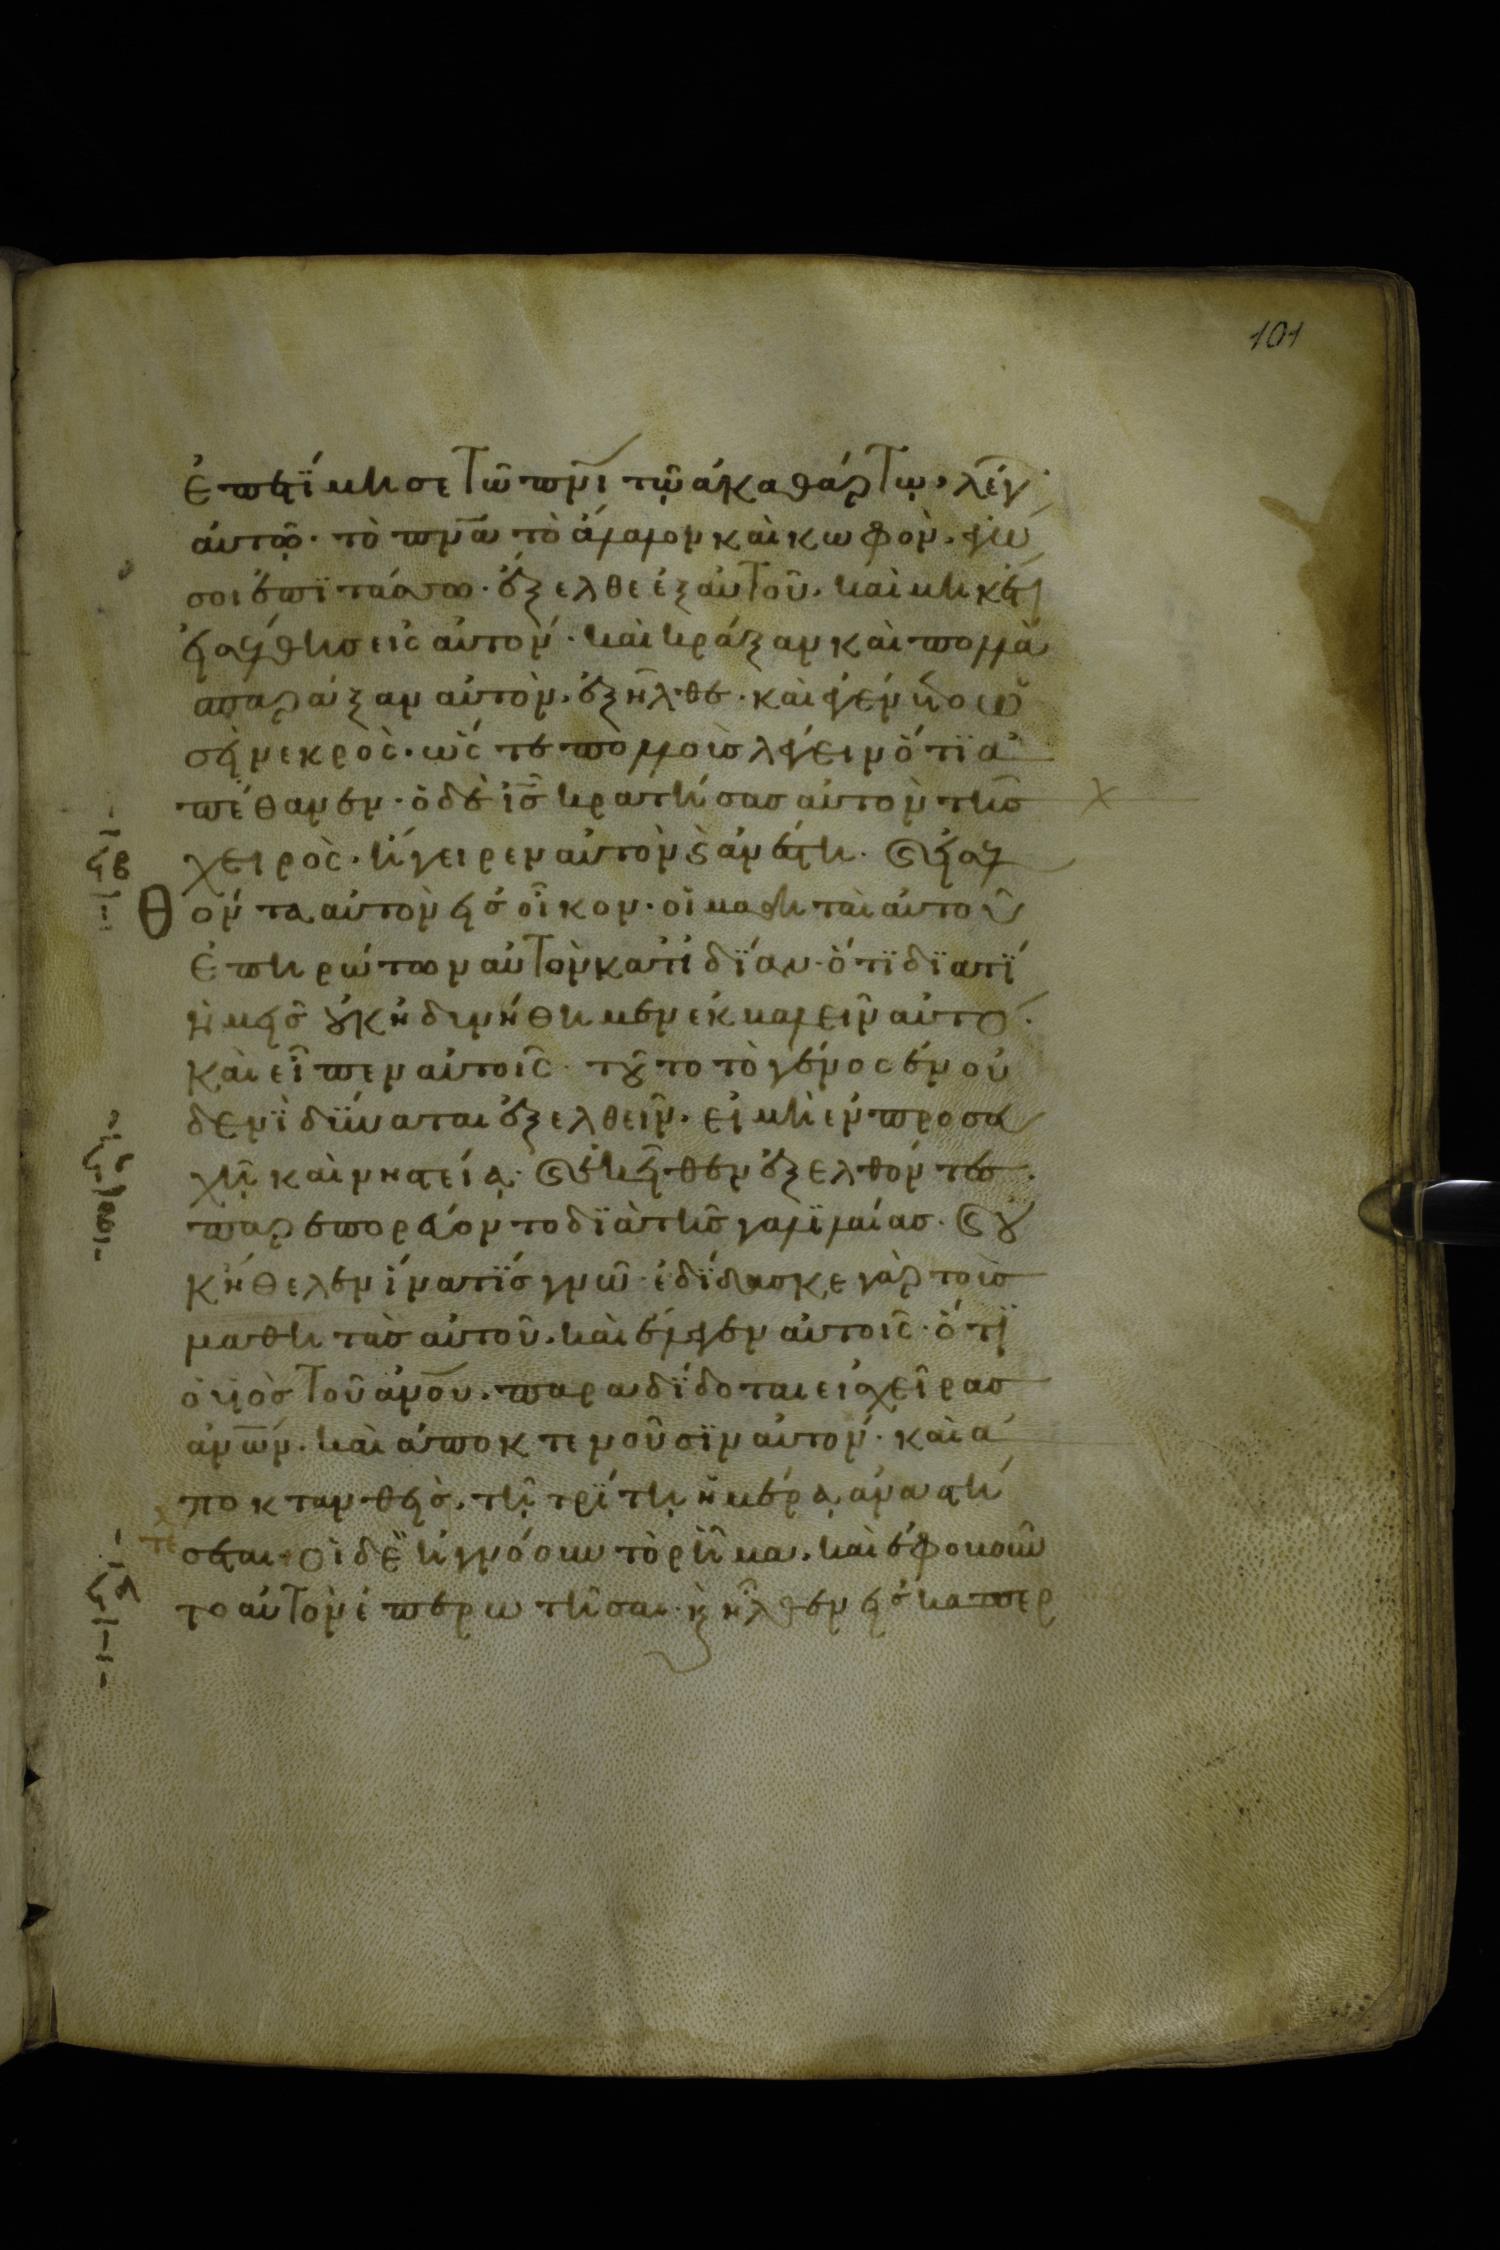 101
ἐπετΐμησε τῶ πνι τῶ ἀκαθάρτω, λέγ
αὐτῶ· τὸ πνα τὸ ἄλαλον καὶ κωφὸν· ἐγώ
σοι ἐπϊτάσσω· ἔξελθε ἐξ αὐτοῦ, καὶ μηκέτι
εἰσέλθησ εἰς αὐτόν· καὶ κράξαν καὶ πολλὰ
σπαράξαν αὐτὸν, ἐξῆλθε· καὶ ἐγένετο ὡ
σεὶ νεκρὸς· ὥς τε πολλοὺσ λέγειν ὅτϊ ἀ
πέθανεν· ὁ δὲ ισ κρατήσασ αὐτὸν τῆσ
χειρὸς· ἤγειρεν αὐτὸν ϗ ἀνέστη· ϗ εἰσελ
θόντα αὐτὸν εἰσ οἶκον· οἱ μαθηταὶ αὐτοῦ
ἐπηρώτων αὐτὸν κατ ἰδΐαν· ὅτϊ δϊατΐ
ἡμεῖσ οὐκ ἠδυνήθημεν ἐκβαλεῖν αὐτό·
καὶ εἶπεν αὐτοῖς· τοῦτο τὸ γένος ἐν οὐ
δενὶ δύναται ἐξελθεῖν· εἰ μὴ ἐν προσευ
χῆ καὶ νηστεία· ϗ ἐκεῖθεν ἐξελθόντεσ·
παρεπορεύοντο δϊὰ τῆσ γαλϊλαίασ· ϗ οὐ
κ ἤθελεν ἵνα τϊσ γνῶ· ἐδΐδασκε γὰρ τοὺσ
μαθητὰσ αὐτοῦ, καὶ ἔλεγεν αὐτοῖς· ὅτϊ
ὁ υἱὸσ τοῦ ανου, παραδΐδοται εἰσ χεῖρασ
ανων, καὶ ἀποκτενοῦσϊν αὐτόν· καὶ ἀ
ποκτανθεὶσ, τῆ τρΐτη ἡμέρα, ἀναστή
σεται· οἱ δὲ ἠγνόουν τὸ ρῆμα, καὶ ἐφοβοῦν
το αὐτὸν ἐπερωτῆσαι· ϗ ἦλθεν εἰσ καπερ